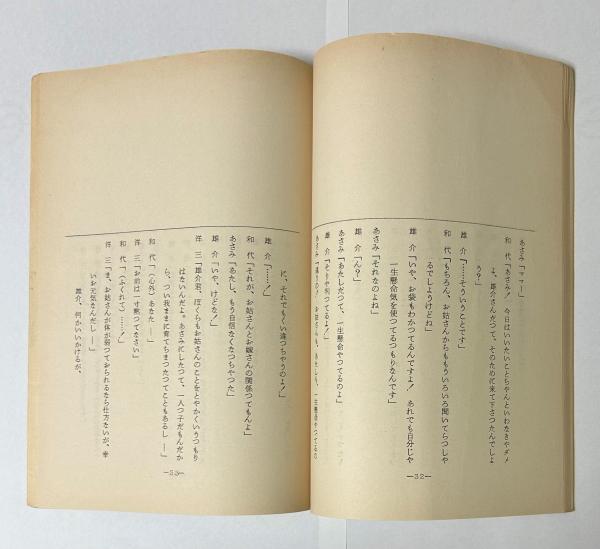 あさみ「ママー」
和代「あさみ！　今日はいいたいことちゃんといわなきやダメ
よ、雄介さんだつて、そのために来て下さつたんでしょ
う？」
雄介「……そういうことです」
和代「もちろん、お姑さんからももういろいろ聞いてらつしや
るでしょうけどね」
雄介「いや、お袋もわかつてるんですよ！　あれでも自分じや
一生懸命気を使つてるつもりなんです」
あさみ「それなのよね」
雄介「ん？」
あさみ「あたしだつて、一生懸命やつてるのよ」
雄介「そりや判つてるよ！」
あさみ「違うの！　お姑さんも、あたしも、一生懸命やつてるの
―32―
に、それでもくい違つちやうのよ！」
雄介「……！」
和代「それが、お姑さんとお嫁さんの関係つてもんよ」
あさみ「あたし、もう自信なくなつちやつた」
雄介「いや、けどな！」
洋三「雄介君、ぼくらもお姑さんのことをとやかくいうつもり
はないんだよ。あさみにしたつて、一人つ子だもんだか
ら、つい我ままに育てちまつたつてこともあるし ―」
和代「（心外）あなた ―」
洋三「お前は一寸黙つてなさい」
和代「（ふくれて）……！」
洋三「ま、お姑さんが体が弱つておられるなら仕方ないが、幸
いお元気なんだし ―」
雄介、何かいいかけるが、
―33―